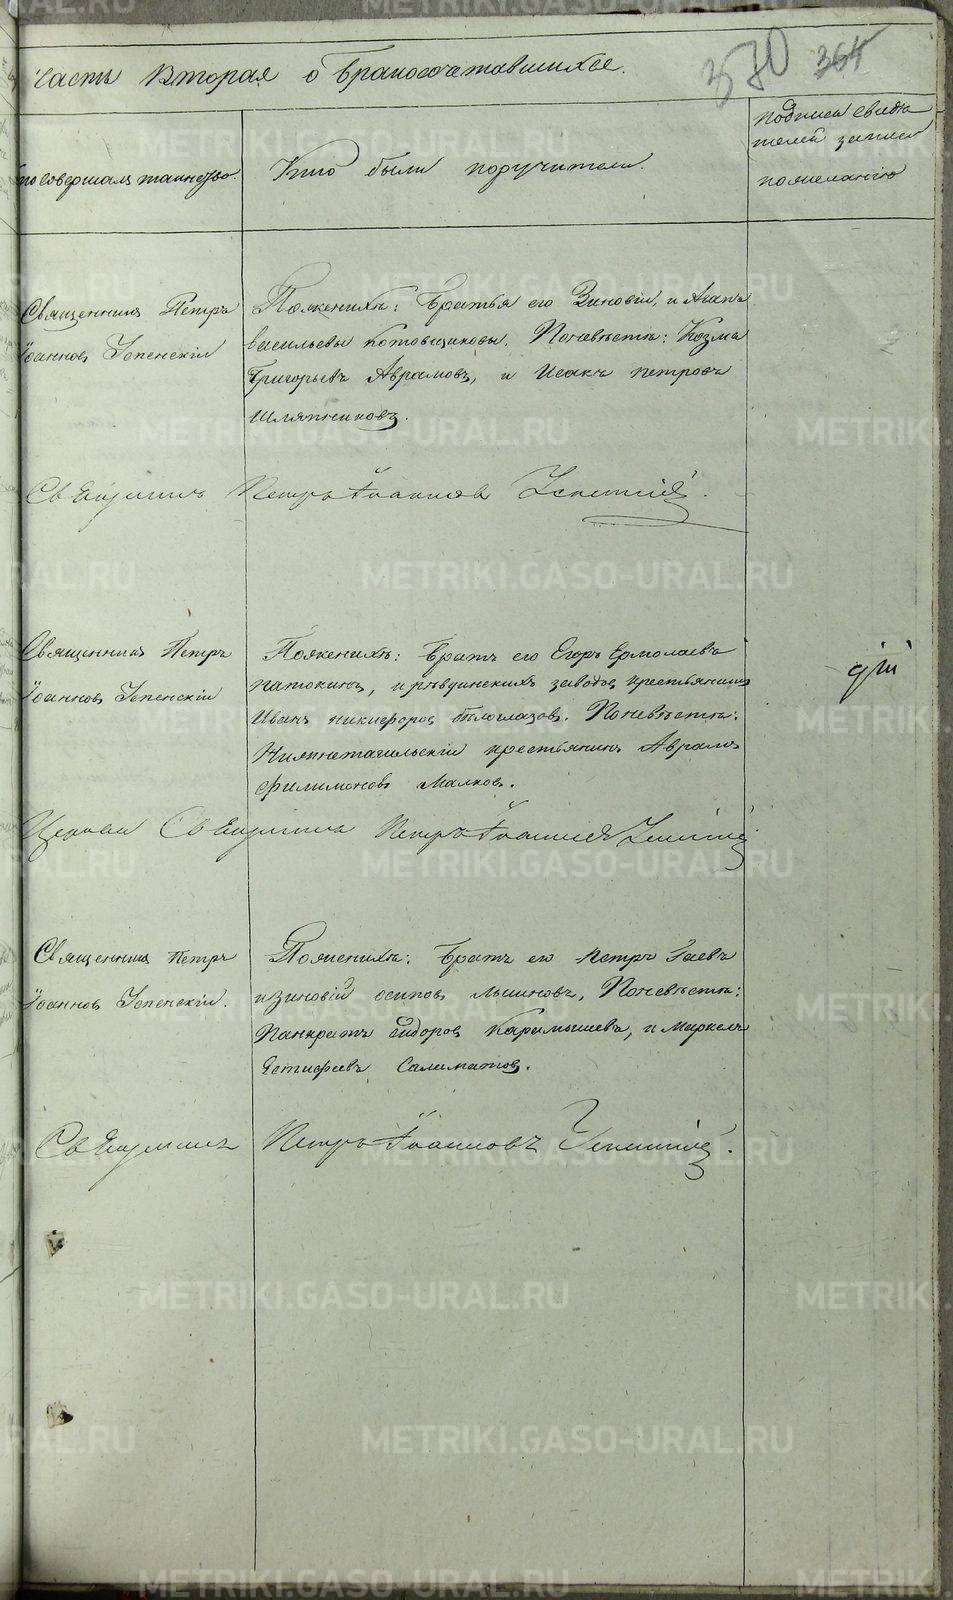 Часть Вторая о бракосочетавшихся.
370 364
то Совершал таинство.
Кто были поручители.
подписи свидѣ
телей записи
по желанію
Священникъ Петръ
Іоаннов Успенскій
По женихѣ: братья его Зиновій, и Агапъ
васильевы котовщиковы. По невѣстѣ: Козма
Григорьевъ Аврамовъ, и Исакъ петровъ
шляпниковъ.
Священникъ Петръ Іоанновъ Успенскій.
Священникъ Петръ
Іоаннов Успенскій
По женихѣ: братъ его Егоръ Ермолаевъ
патокинъ, и ревдинскихъ заводов крестьянинъ
Иванъ никифоров бѣлоглазов. По невѣстѣ:
Нижнетагильскій крестьянинъ Аврамъ
филимоновъ Малков.
Церкви Священникъ Петръ Іоанновъ Успенскій
Священник петръ
Іоаннов Успенскій.
По женихѣ: братъ его петръ Гаевъ
и зиновій осипов лышновъ, По невѣстѣ:
Панкратъ Сидоров Карамышевъ, и Маркелъ
Естифеевъ Салиматов.
Священникъ Петръ Іоанновъ Успенскій.
METRIKI.GASO-URAL.RU